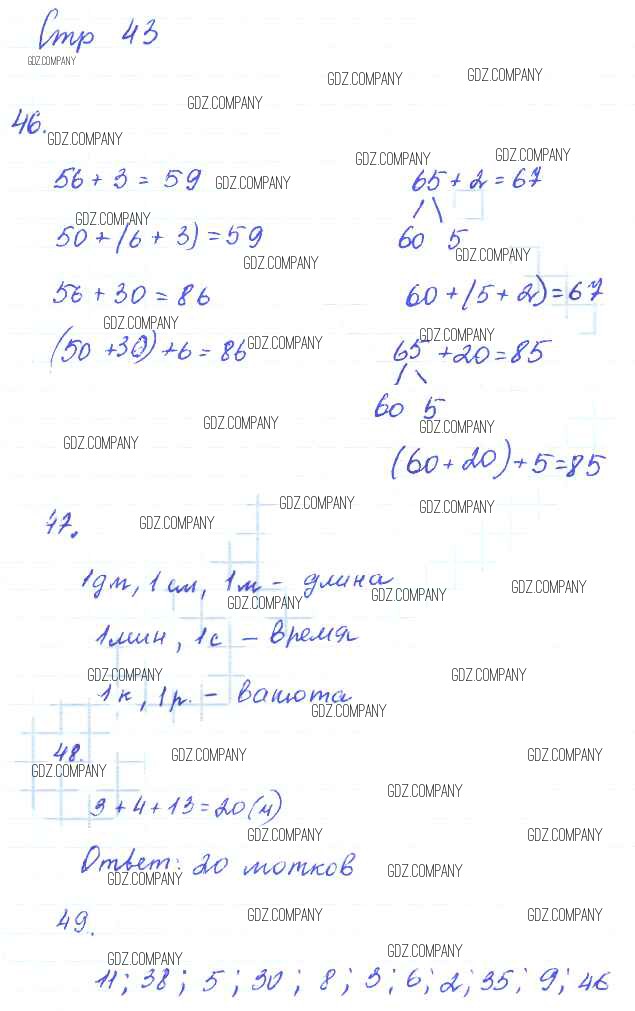 Стр 43
46.
56 + 3 = 59
50 + (6 + 3) = 59
56 + 30 = 86
(50 + 30) + 6 = 86
65 + 2 = 67
60 5
60 + (5 + 2) = 67
65 + 20 = 85
60 5
(60 + 20) + 5 = 85
47.
1дм, 1 см, 1м - длина
1мин, 1с - время
1к, 1р. - валюта
48.
3 + 4 + 13 = 20 (м)
Ответ: 20 мотков
49.
11; 38; 5; 30; 8; 3; 6; 2; 35; 9; 46
GDZ.COMPANY